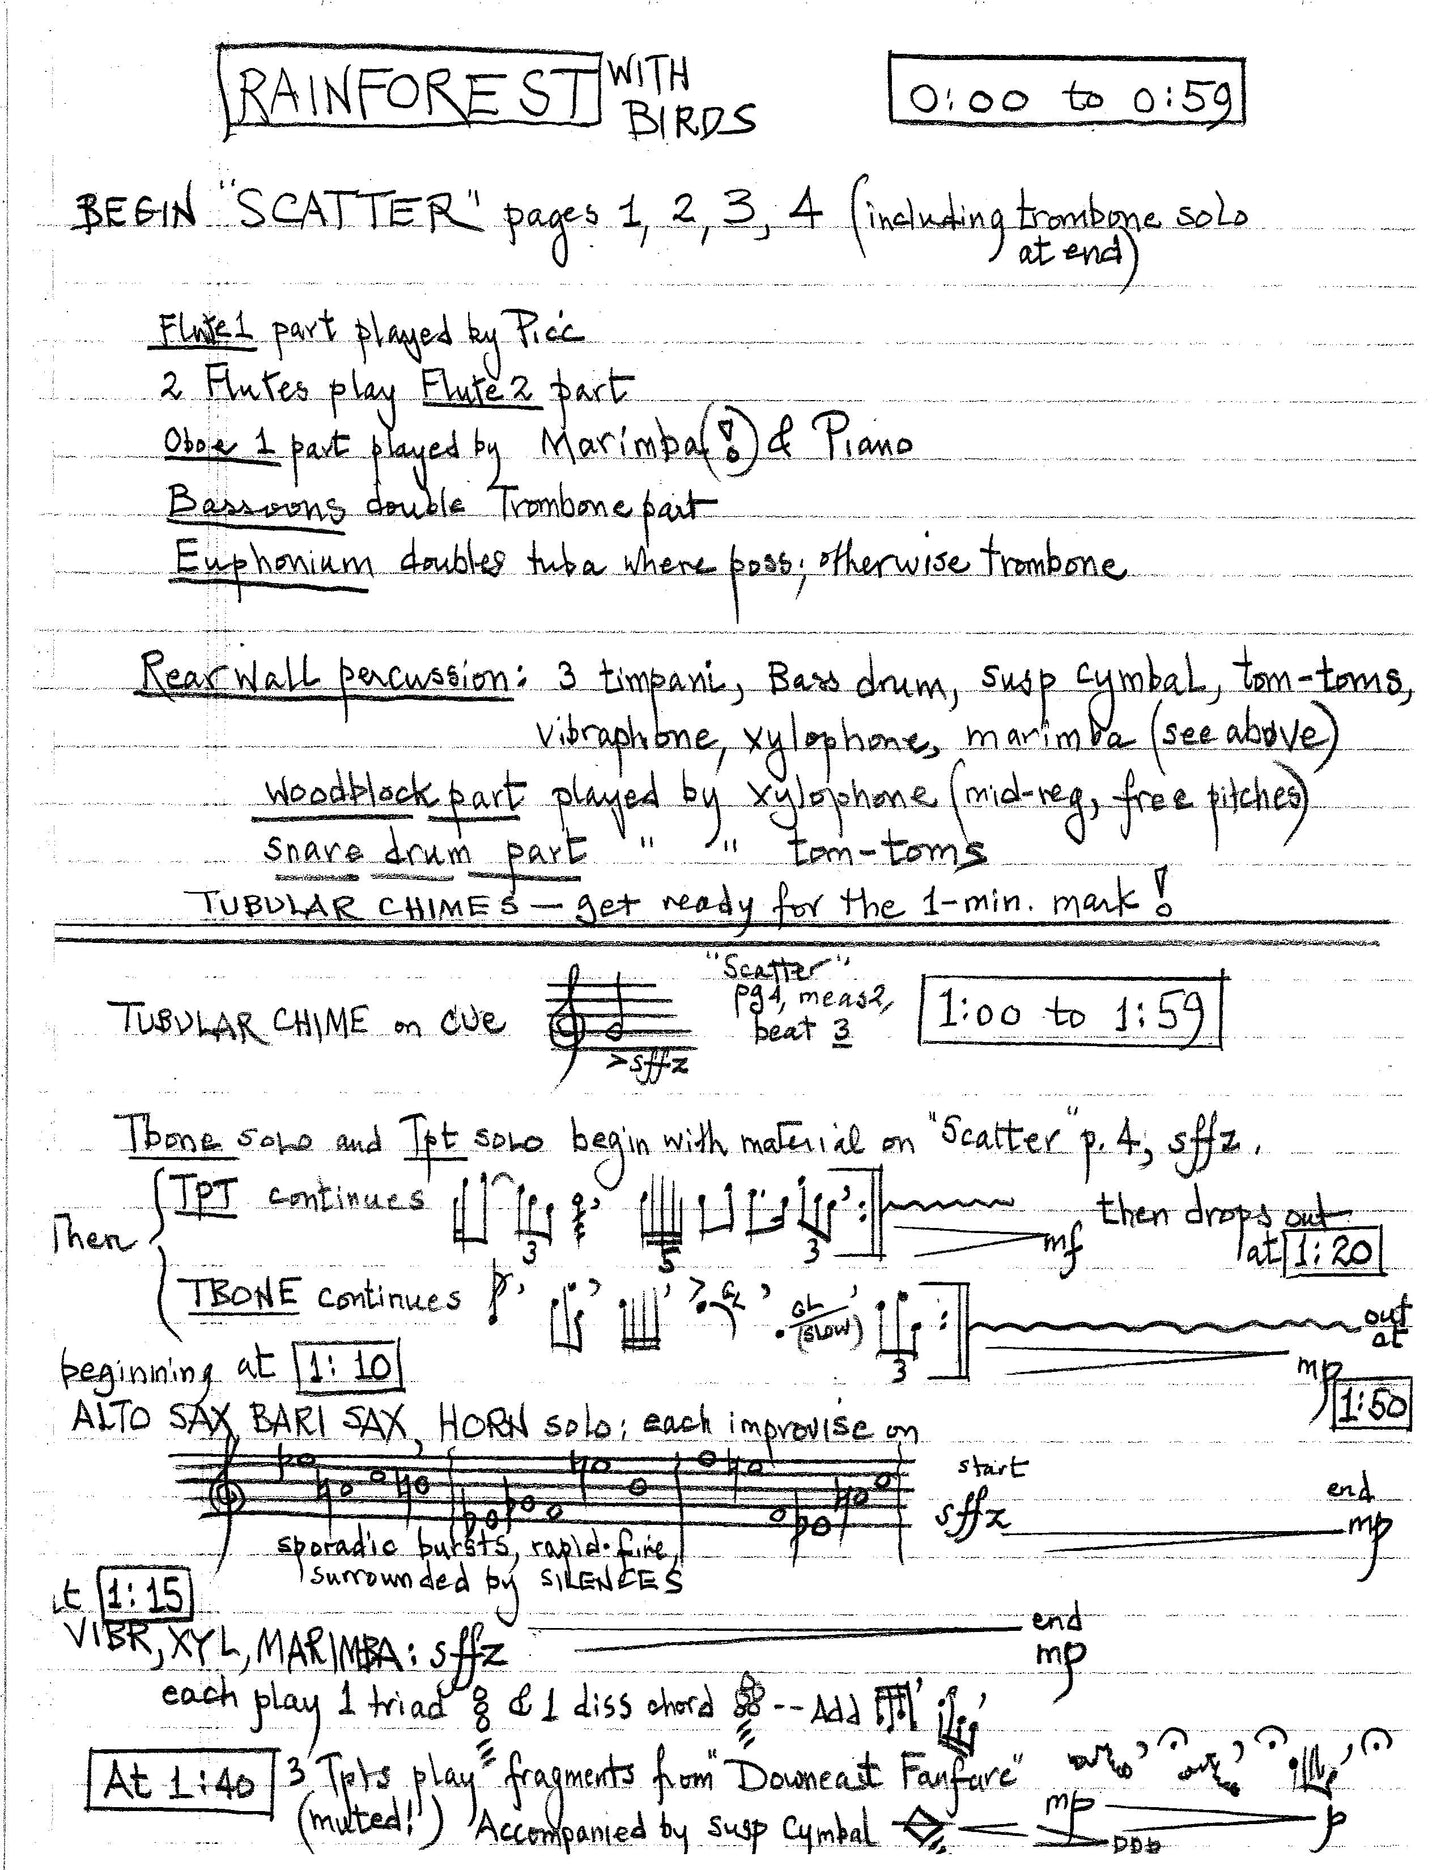 RAINFOREST WITH BIRDS
0:00 to 0:59
BEGIN "SCATTER" pages 1, 2, 3, 4 (including trombone solo
at end)
Flute 1 part played by Picc
2 Flutes play Flute 2 part
Oboe 1 part played by Marimba (!) & Piano
Bassoons double Trombone part
Euphonium doubles tuba where poss; otherwise trombone
Rear wall percussion: 3 timpani, Bass drum, susp cymbal, tom-toms,
vibraphone, xylophone, marimba (see above)
woodblock part played by xylophone (mid-reg, free pitches)
snare drum part " " tom-toms
TUBULAR CHIMES — get ready for the 1-min. mark!
TUBULAR CHIME on CUE
>sffz
"Scatter"
pg 4, meas 2,
beat 3
1:00 to 1:59
Tbone solo and Tpt solo begin with material on "Scatter" p. 4, sffz.
Then
TPT continues
3 5 3
mf
then drops out
at 1:20
TBONE continues
GL
GL
(SLOW)
3
mp
out
at
1:50
beginning at 1:10
ALTO SAX, BARI SAX, HORN solo: each improvise on
start
sffz
end
mp
sporadic bursts, rapid-fire,
surrounded by SILENCES
t 1:15
VIBR, XYL, MARIMBA: sffz
end
mp
each play 1 triad & 1 diss chord -- Add
At 1:40
3 Tpts play fragments from "Downeast Fanfare"
(muted!) Accompanied by susp cymbal
mp
p
ppp